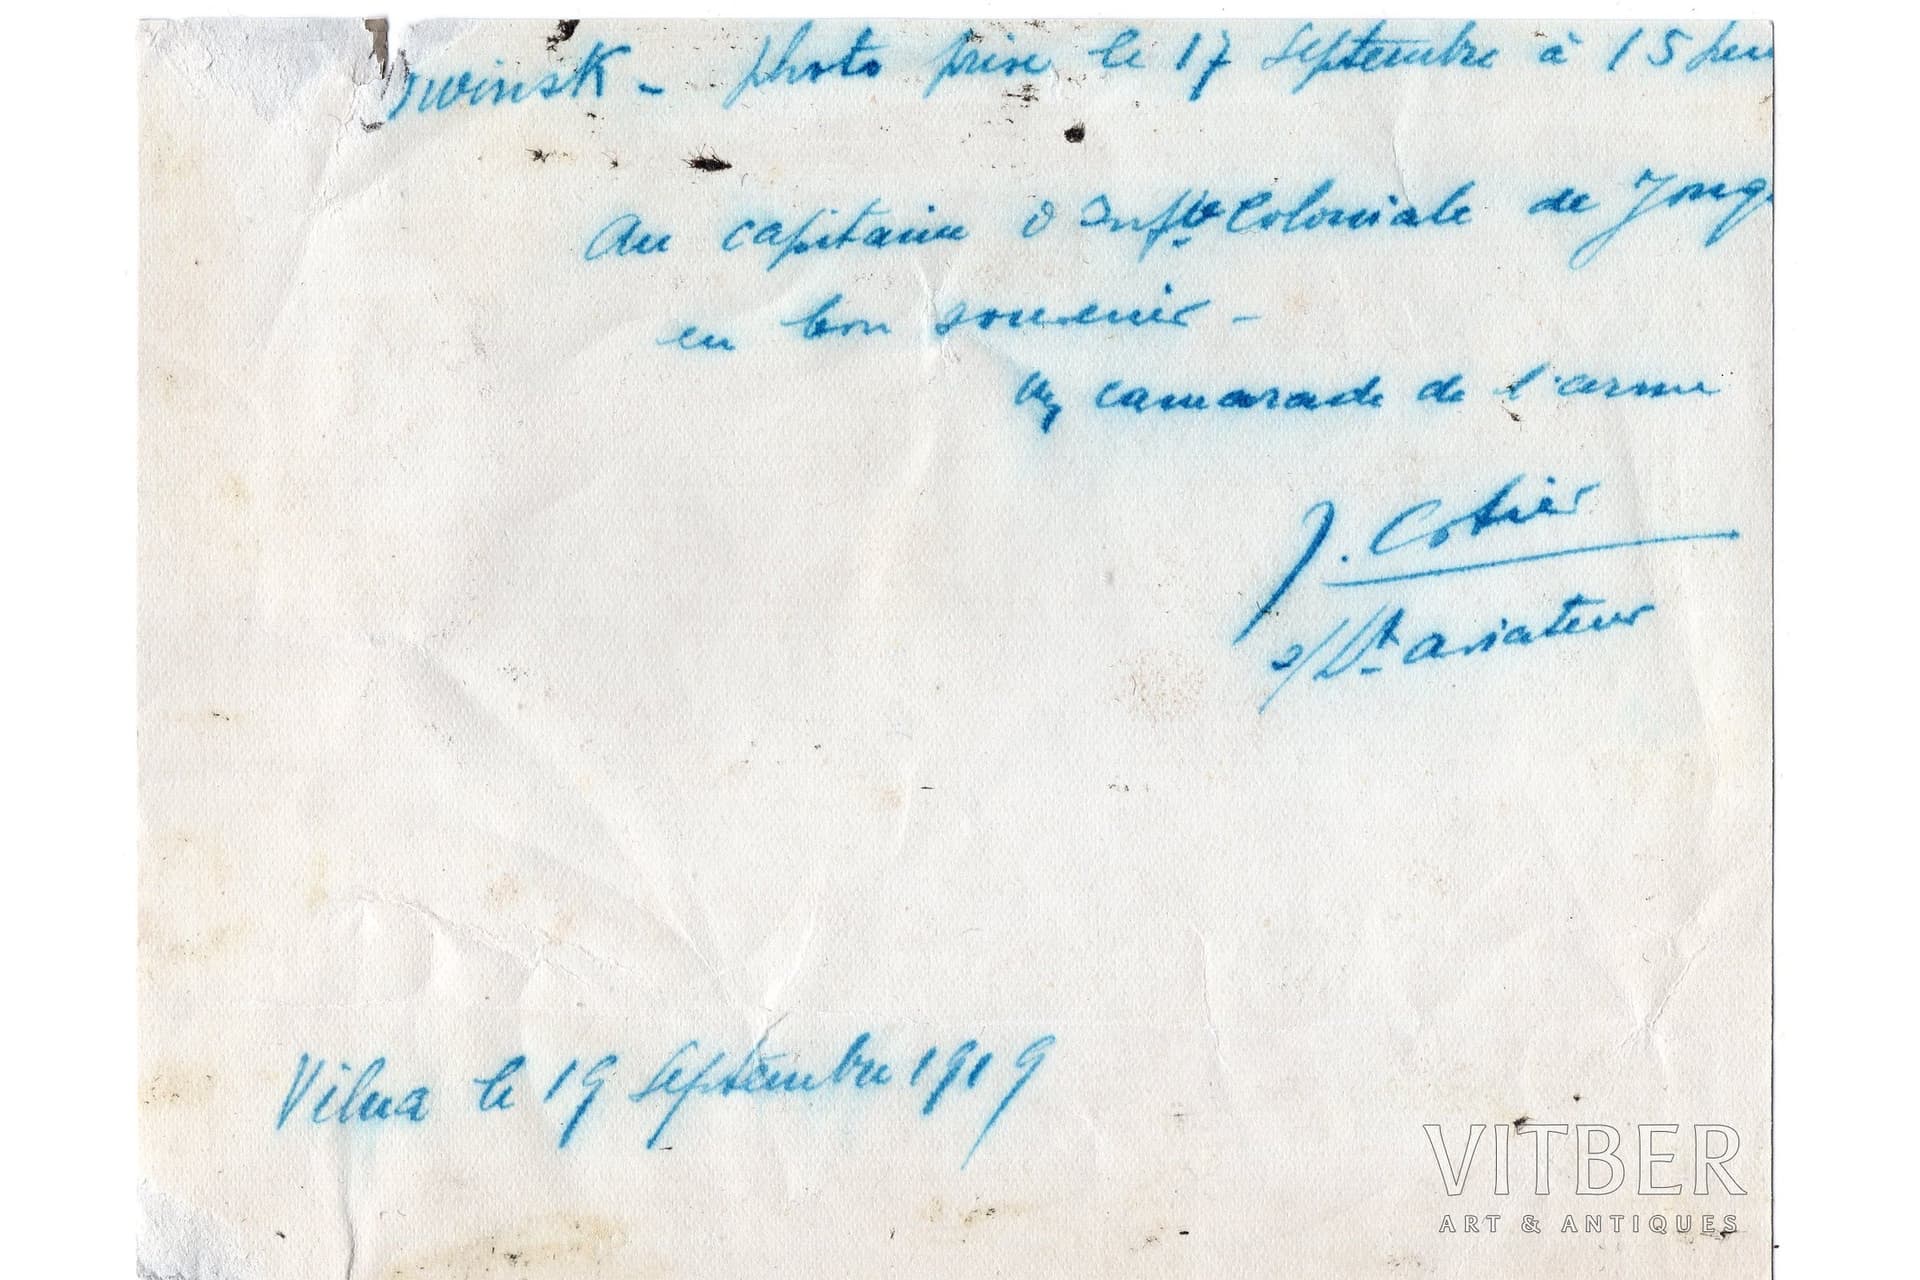 Dwinsk - photo prise le 17 Septembre à 15 heu
Au capitaine d'Inf^te Coloniale de Jong
en bon souvenir -
camarade de l'arme
J. Cotier
s/Lt aviateur
Vilna le 19 Septembre 1919
VITBER
ART & ANTIQUES